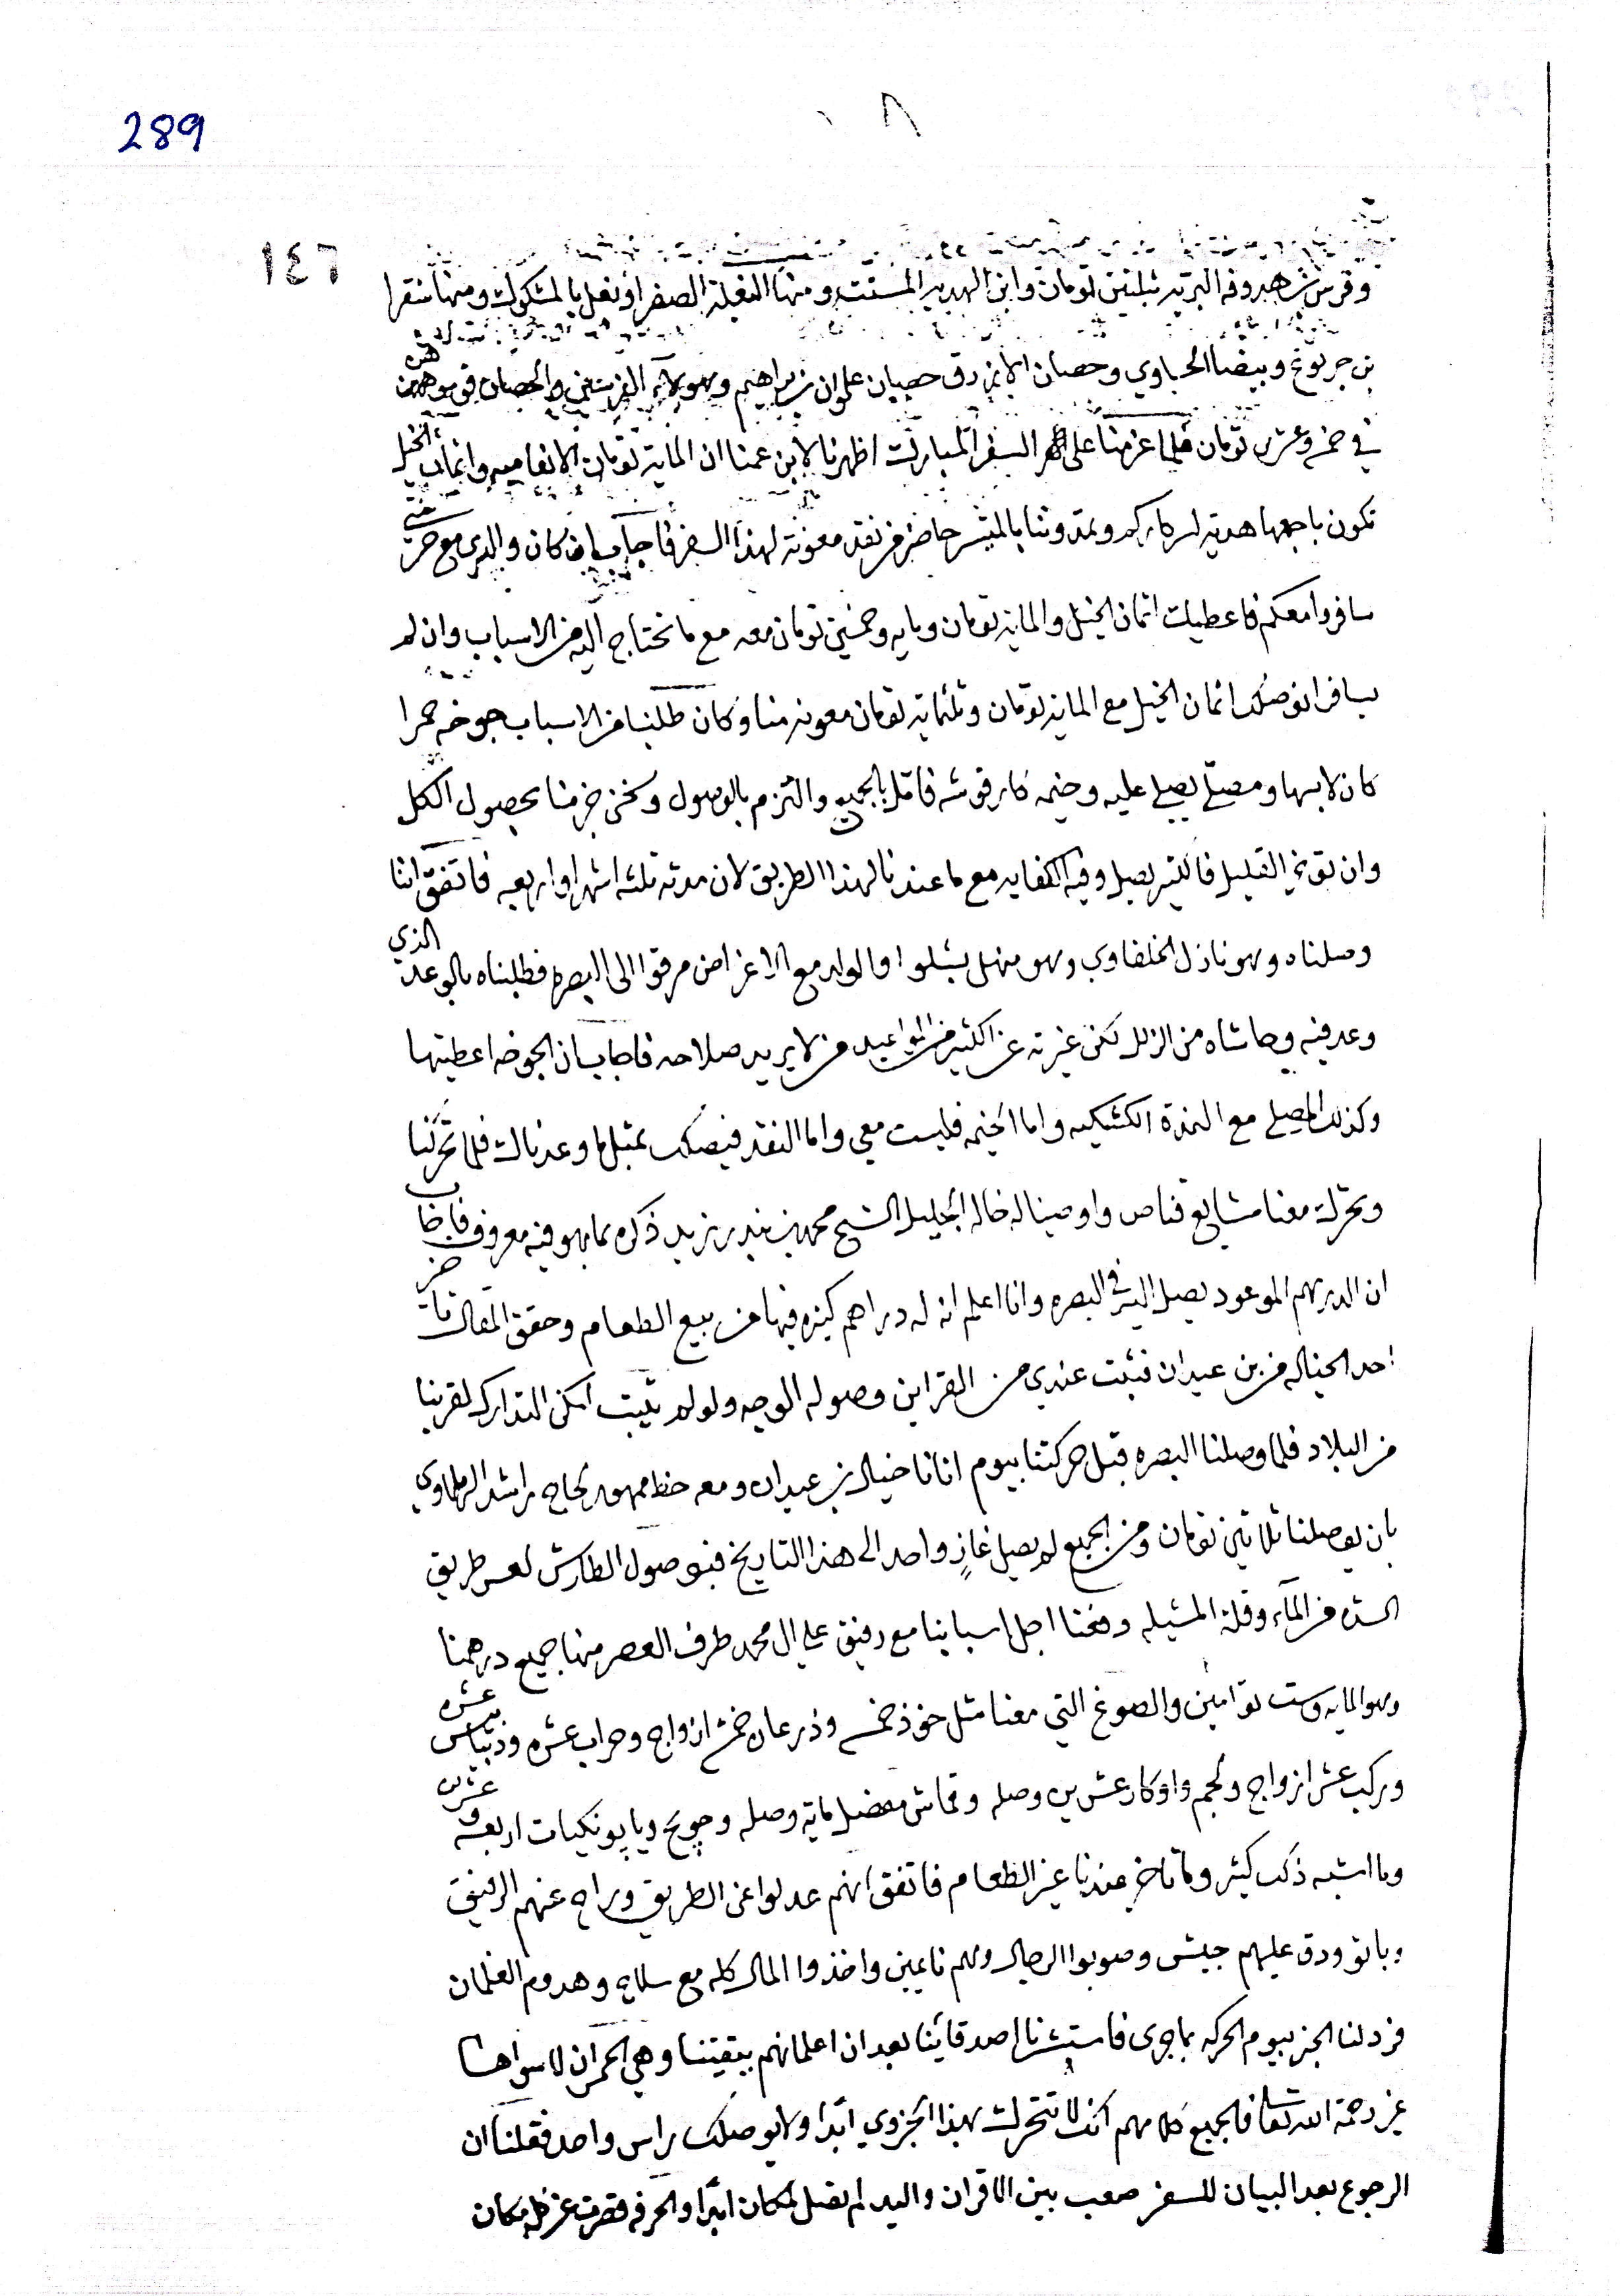 289
١٤٦
وفرس شاهروفه البريه بثلثين تومان وابن الهدبه المستت ومنها البغلة الصفرا ونعل بالمشكوك ومنها شقرا
بن جريوغ وبيضا الحباوي وحصان الازرق حصان علوان بن براهيم وهولاء الفرستين والحصان في يوم هن
في خمس وعشرين تومان فلما عزمنا على السفر المبارك اظهرنا لابن عمنا ان الماية تومان الانعاميه واثمان الخيل
تكون باجمعها هدية لسركاركم وتمدوننا بالميسر حاضر من نقد معونة لهذا السفر فاجاب بان كان والدي مع
سافروا معكم فاعطيك اثمان الخيل والماية تومان وماية وخمسين تومان معه مع ما تحتاج اليه من الاسباب وان لم
يسافر انوصلك اثمان الخيل مع الماية تومان وثلثماية تومان معونه منا وكان طلبنا من الاسباب جوخه حمرا
كان لابسها ومصلى يصلي عليه وخيمه كار قوشه فاقبل بالجميع والتزم بالوصول ونحن جزمنا بحصول الكل
وان تونى القليل فالكثير يصل وفيه الكفايه مع ما عندنا لهذا الطريق لان مدته ثلثه اشهر او اربعه فاتفق اننا
وصلناه وهو نازل الخلفاوي وهو منهل بشلوا والولد مع الاغراض مرقوا الى البصره فطلبناه بالوعد الذي
وعد فيه وحاشاه من الزلل لكن غيرته عن الكثير من المواعيد من لا يريد صلاحه فاجاب ان الجوخه اعطيتها
وكذلك المصلى مع النمزة الكشكيه واما الخيمه فليست معي واما النقد فيصلك بمثل ما وعدناك فلما تحركنا
وتحرك معنا مشايع قناص واوصينا له خاله الجليل الشيخ محمد بن بندر نزيد ذكره بما هو فيه معروف فاجاب
ان الدرهم الموعود يصل اليك في البصره وانا اعلم انه له دراهم كثيره فيها من بيع الطعام وحقق المقال
احد الخياله من بن عيدان فثبت عندي من القراين وصوله الوجه ولو لم يثبت امكن التدارك لقربنا
من البلاد فلما وصلنا البصره قبل حركتنا بيوم اتانا خيال بن عيدان ومعه خط ممهور لحاج راشد الرملاوي
بان يوصلنا ثلاثين تومان ومن الجميع لم يصل غاز واحد الى هذا التاريخ فبنى وصول الطارش لعسر طريق
السته من الماء وقلة المشيله وفحنا اجل اسبابنا مع رفيق علي ال محمد طرف العصر منها جميع درهمنا
وهو المايه وست توامين والصوغ التي معنا مثل خوذ خمسه وذرعان خمسه ازواج وحراب عشره ودبابيس عشره
وركب عشر ازواج ولجم واوكار عشرين وصله وقماش مفصل ماية وصله وجوخ ويابونكيات اربعه وعشرين
وما اشبه ذلك كثير وما تاخر عندنا غير الطعام فاتفق انهم عدلوا عن الطريق وراح عنهم الرفيق
وباتو ودق عليهم جيش وصوبوا الرجال وهم نايمين واخذوا المال كله مع سلاح وهدوم الغلمان
فرد لنا الخبر بيوم الحركه بما جرى فاستشرنا اصدقائنا بعد ان اعلمانهم ببقيتنا وهي الحمران لا سواها
غير رحمة الله تعالى فالجميع كلامهم انك لا تتحرك بهذا الجزوي ابدا ولا يوصلك راس واحد فقلنا ان
الرجوع بعد البيان للسفر صعب بين الاقران واليد لم تصل لمكان ابدا والحرفه قصرت عن كل مكان